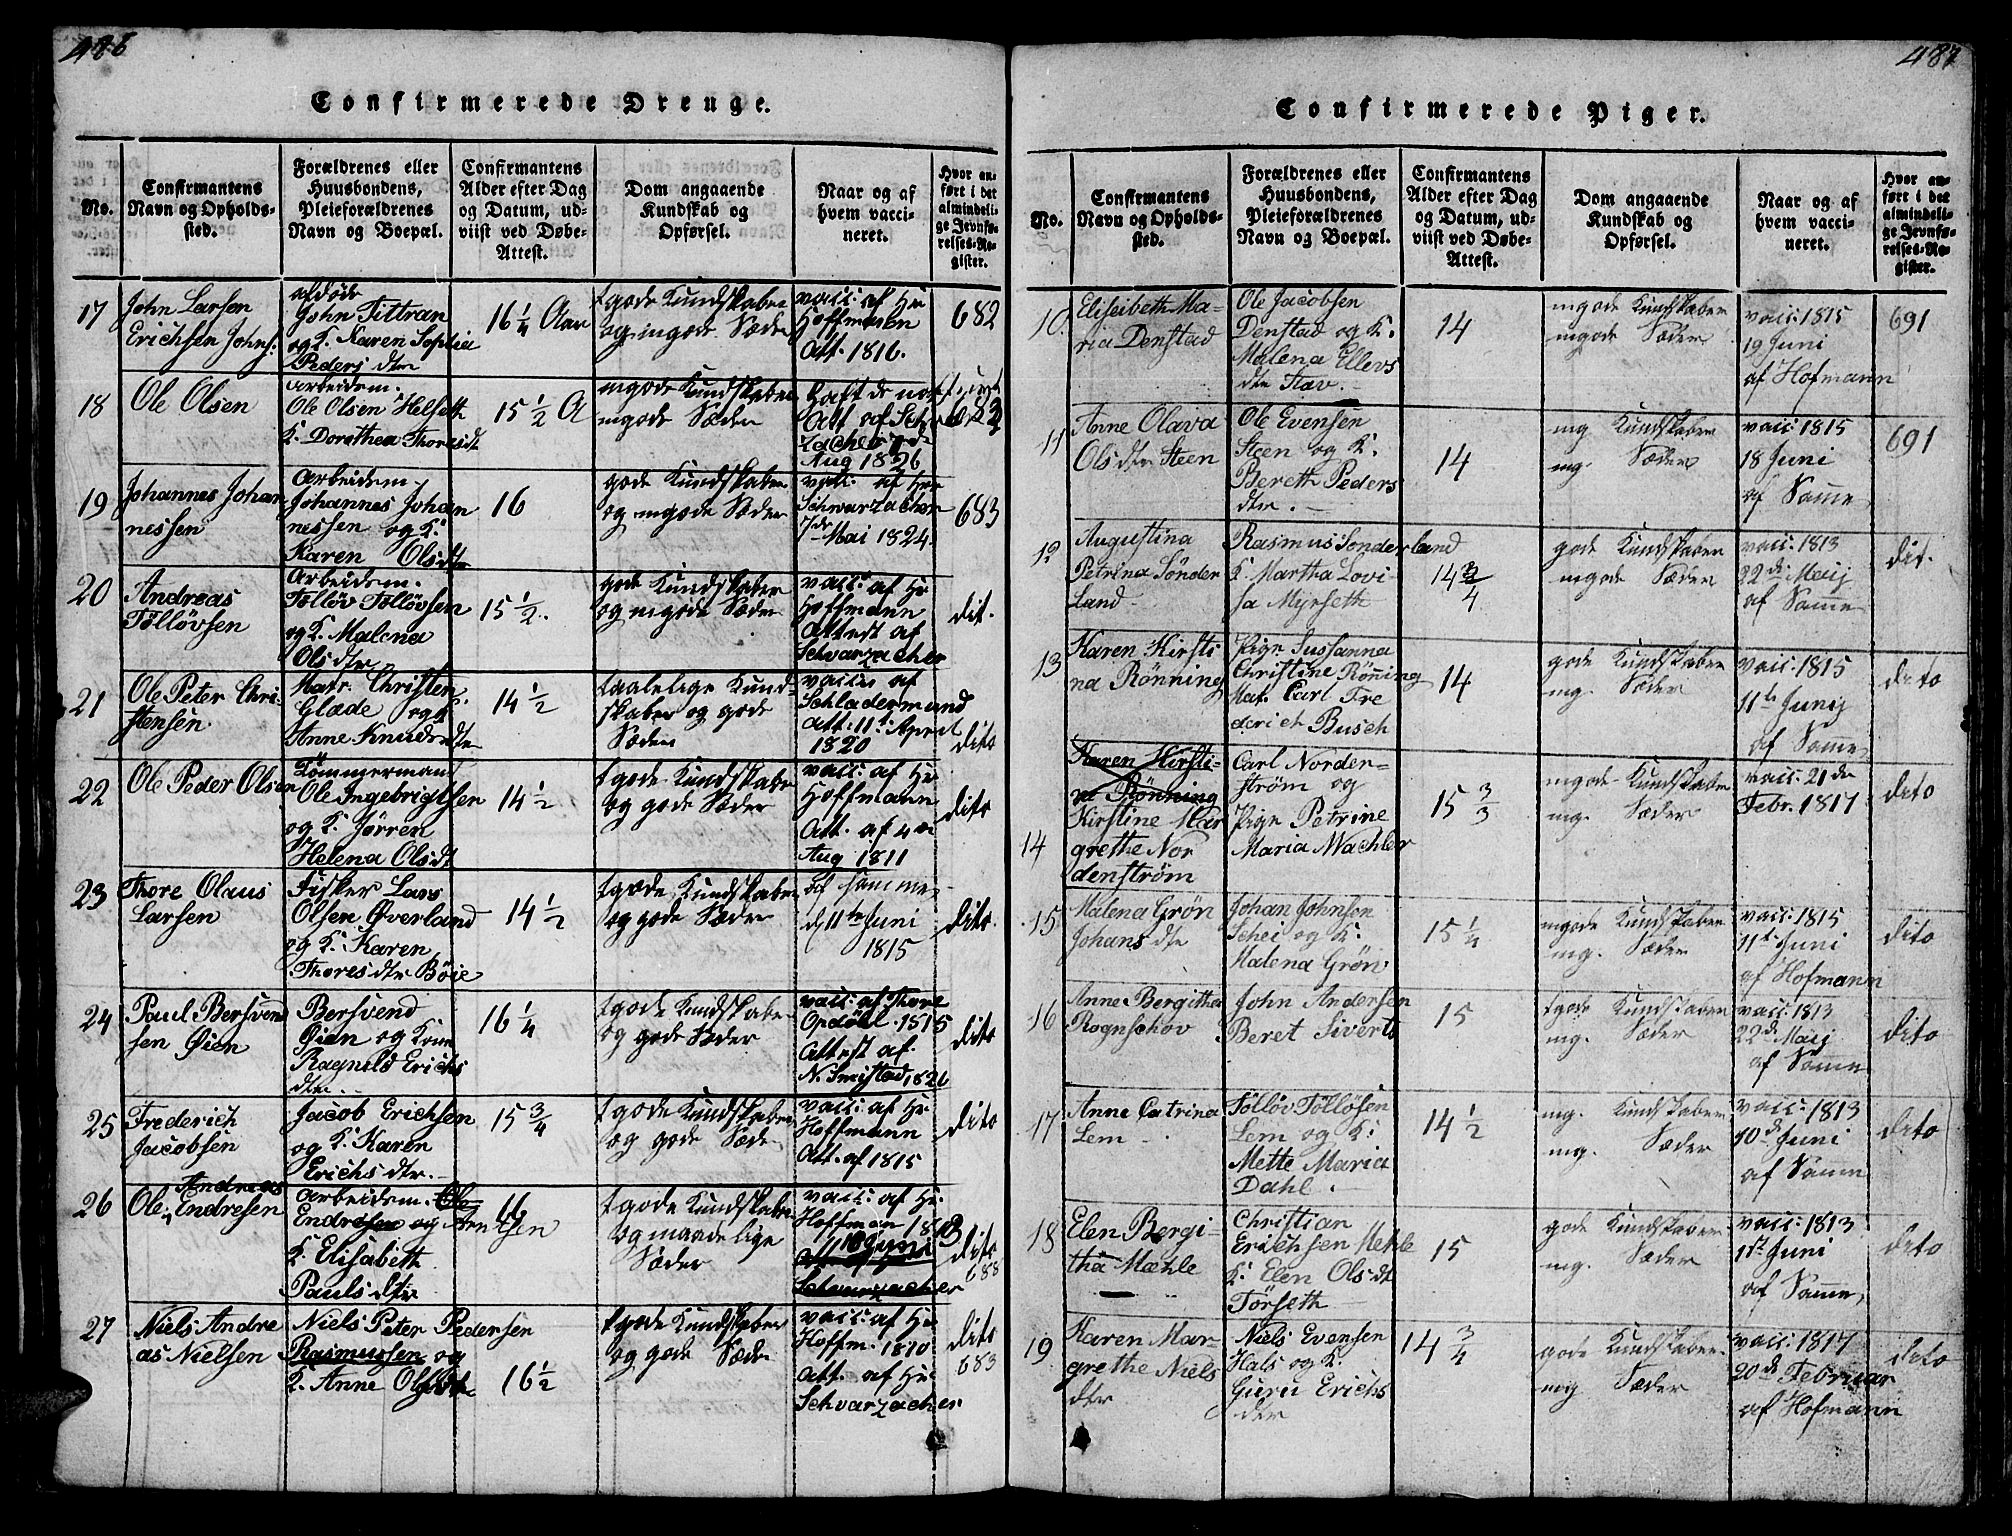 486
Confirmerede Drenge.
No.
Confirmantens
Navn og Opholds-
sted.
Forældrenes eller
Huusbondens,
Pleieforældrenes
Navn og Boepæl.
Confirmantens
Alder efter Dag
og Datum, ud-
viist ved Døbe-
Attest.
Dom angaaende
Kundskab og
Opførsel.
Naar og af
hvem vacci-
neret.
Hvor an-
ført i det
almindeli-
ge Jevnfø-
relses-Re-
gister.
17
John Larsen
Erichsen Johns:
afdøde
John Tittran
og K. Karen Sophia
Peders dtr
16 1/4 Aar
tgode Kundskaber
og mgode Sæder
vacc: af Hr
Hoffmann
Att. 1816.
682
18
Ole Olsen
Arbeidem.
Ole Olsen Helseth
K. Dorothea Thoresdt
15 1/2 A
mgode Kundskaber
mgode Sæder
Att af
Aug 1826
19
Johannes Johan
nessen
Arbeidem.
Johannes Johan
nessen og K.
Karen Olsdtr
16
gode Kundskaber
og mgode Sæder
vacc. af Hr
Schwarzacher
7de Mai 1824.
683
20
Andreas
Tølløvsen
Arbeidem.
Tølløv Tølløvsen
og K. Malena
Olsdtr
15 1/2.
gode Kundskaber
og mgode Sæder
vacc: af Hr
Hoffmann
Attest af
Schvarzacher
dit.
21
Ole Peter Chri-
stensen
Matr. Christen
Glæde og K.
Anne Knudsdtr
14 1/2
taalelige Kund-
skaber og gode
Sæder
vacc: af
Schladermund
Att. 11t April
1820
dito
22
Ole Peder Olsen
Tømmermand
Ole Ingebrigtsen
og K. Jørren
Helena Olsdt
14 1/2
tgode Kundskaber
og gode Sæder
vacc: af Hr
Hoffmann
Att. af 4de
Aug 1811
dito
23
Thore Olaus
Larsen
Fisker Lars
Olsen Øverland
og K. Karen
Thoresdtr Bøie
14 1/2
tgode Kundskaber
og gode Sæder
af samme
d. 11te Juni
1815
dito.
24
Paul Bersvend
sen Øien
Bersvend
Øien og Kone
Ragnild Erichs
dtr.
16 1/4
tgode Kundskaber
og gode Sæder
vacc: af Thore
Opdøhl. 1815
Attest af
N. Smistad, 1826
dito
25
Frederich
Jacobsen
Jacob Erichsen
og K. Karen
Erichs dtr.
15 3/4
tgode Kundskaber
og gode Sæde
vacc: af Hr
Hoffmann
Att. af 1815
dito
26
Andreas
Ole Endresen
Arbeidem. Ole
Endresen og Arntsen
K. Elisabeth
Pauls dtr
16
tgode Kundskaber
og maadelige
Sæder
vacc. af Hr.
Hoffman
Schvarzacher
dito
688
27
Niels Andre
as Nielsen
Niels Peter Pedersen
Rasmussen og
K. Anne Olsdtr
16 1/2
tgode Kundskaber
og gode Sæder
vacc: af Hr
Hoffm. 1810
Att. af Hr
Schvarzacher
dito
683
487
Confirmerede Piger.
No.
Confirmantens
Navn og Opholds-
sted.
Forældrenes eller
Huusbondens,
Pleieforældrenes
Navn og Boepæl.
Confirmantens
Alder efter Dag
og Datum, ud-
viist ved Døbe-
Attest.
Dom angaaende
Kundskab og
Opførsel.
Naar og af
hvem vacci-
neret.
Hvor an-
ført i det
almindeli-
ge Jevnfø-
relses-Re-
gister.
10.
Elisebeth Ma-
ria Denstad
Ole Jacobsen
Denstad og K.
Malena Ellevs
dtr Stav.
14
mgode Kundskaber
mgode Sæder
vacc: 1815
19 Juni
af Hofmann
691
11
Anne Olava
Olsdtr Steen
Ole Evensen
Steen og K.
Bereth Peders
dtr.
14
mg Kundskaber
mg. Sæder
vacc 1815
18 Juni
af Samme
691
12
Augustina
Petrina Sønder
land
Rasmus Sonderland
K. Martha Lovi-
sa Myrseth
14 3/4
gode Kundskaber
mgode Sæder
vacc: 1813
22de Maij
af Samme
dit.
13
Karen Kirsti
na Rønning
Pige Sussanna
Christine Rønning
Mat. Carl Fre
derich Busch
14
gode Kundskaber
mg. Sæder
vacc: 1815
11te Junij
af Samme
dito
14
Karen Kirsti-
na Rønning
Kirstine Mar
grethe Nor
denstrøm
Carl Norden-
strøm og
Pige Petrine
Maria Wachler
15 3/3
mgode Kundskaber
mg. Sæder
vacc: 21de
Febr. 1817
dito
15
Malena Grøn
Johans dtr
Johan Johnsen
Schei og K.
Malena Grøn
15 1/4
mgode Kundskaber
mg. Sæder
vacc: 1815
11t Juni
af Hofmann
dito
16
Anne Bergitha
Rognschov
John Andersen
Beret Siverts
15
tgode Kundskaber
mg. Sæder
vacc: 1813
22de Maij
af Samme
dito
17
Anne Catrina
Lem
Tølløv Tølløfsen
Lem og K:
Mette Maria
Dahl.
14 1/2
mg. Kundskaber
mg. Sæder
vacc: 1813
10de Juni
af Samme
dito
18
Elen Bergi-
tha Mæhle
Christian
Erichsen Mehle
K. Elen Olsdt
Tørseth
15
gode Kundskaber
mg. Sæder
vacc: 1813
1st Juni
af Samme
dito
19
Karen Mar-
grethe Niels
dtr
Niels Evensen
Hals og K.
Guru Erichs
der
14 3/4
gode Kundskaber
mg. Sæder
vacc: 1817
20de Februar
af Hofmann
dito